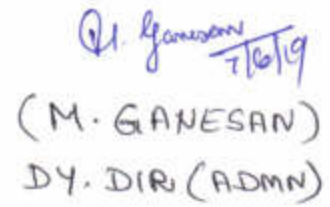 M. Ganesan
7/6/19
(M. GANESAN)
DY. DIR (ADMN)